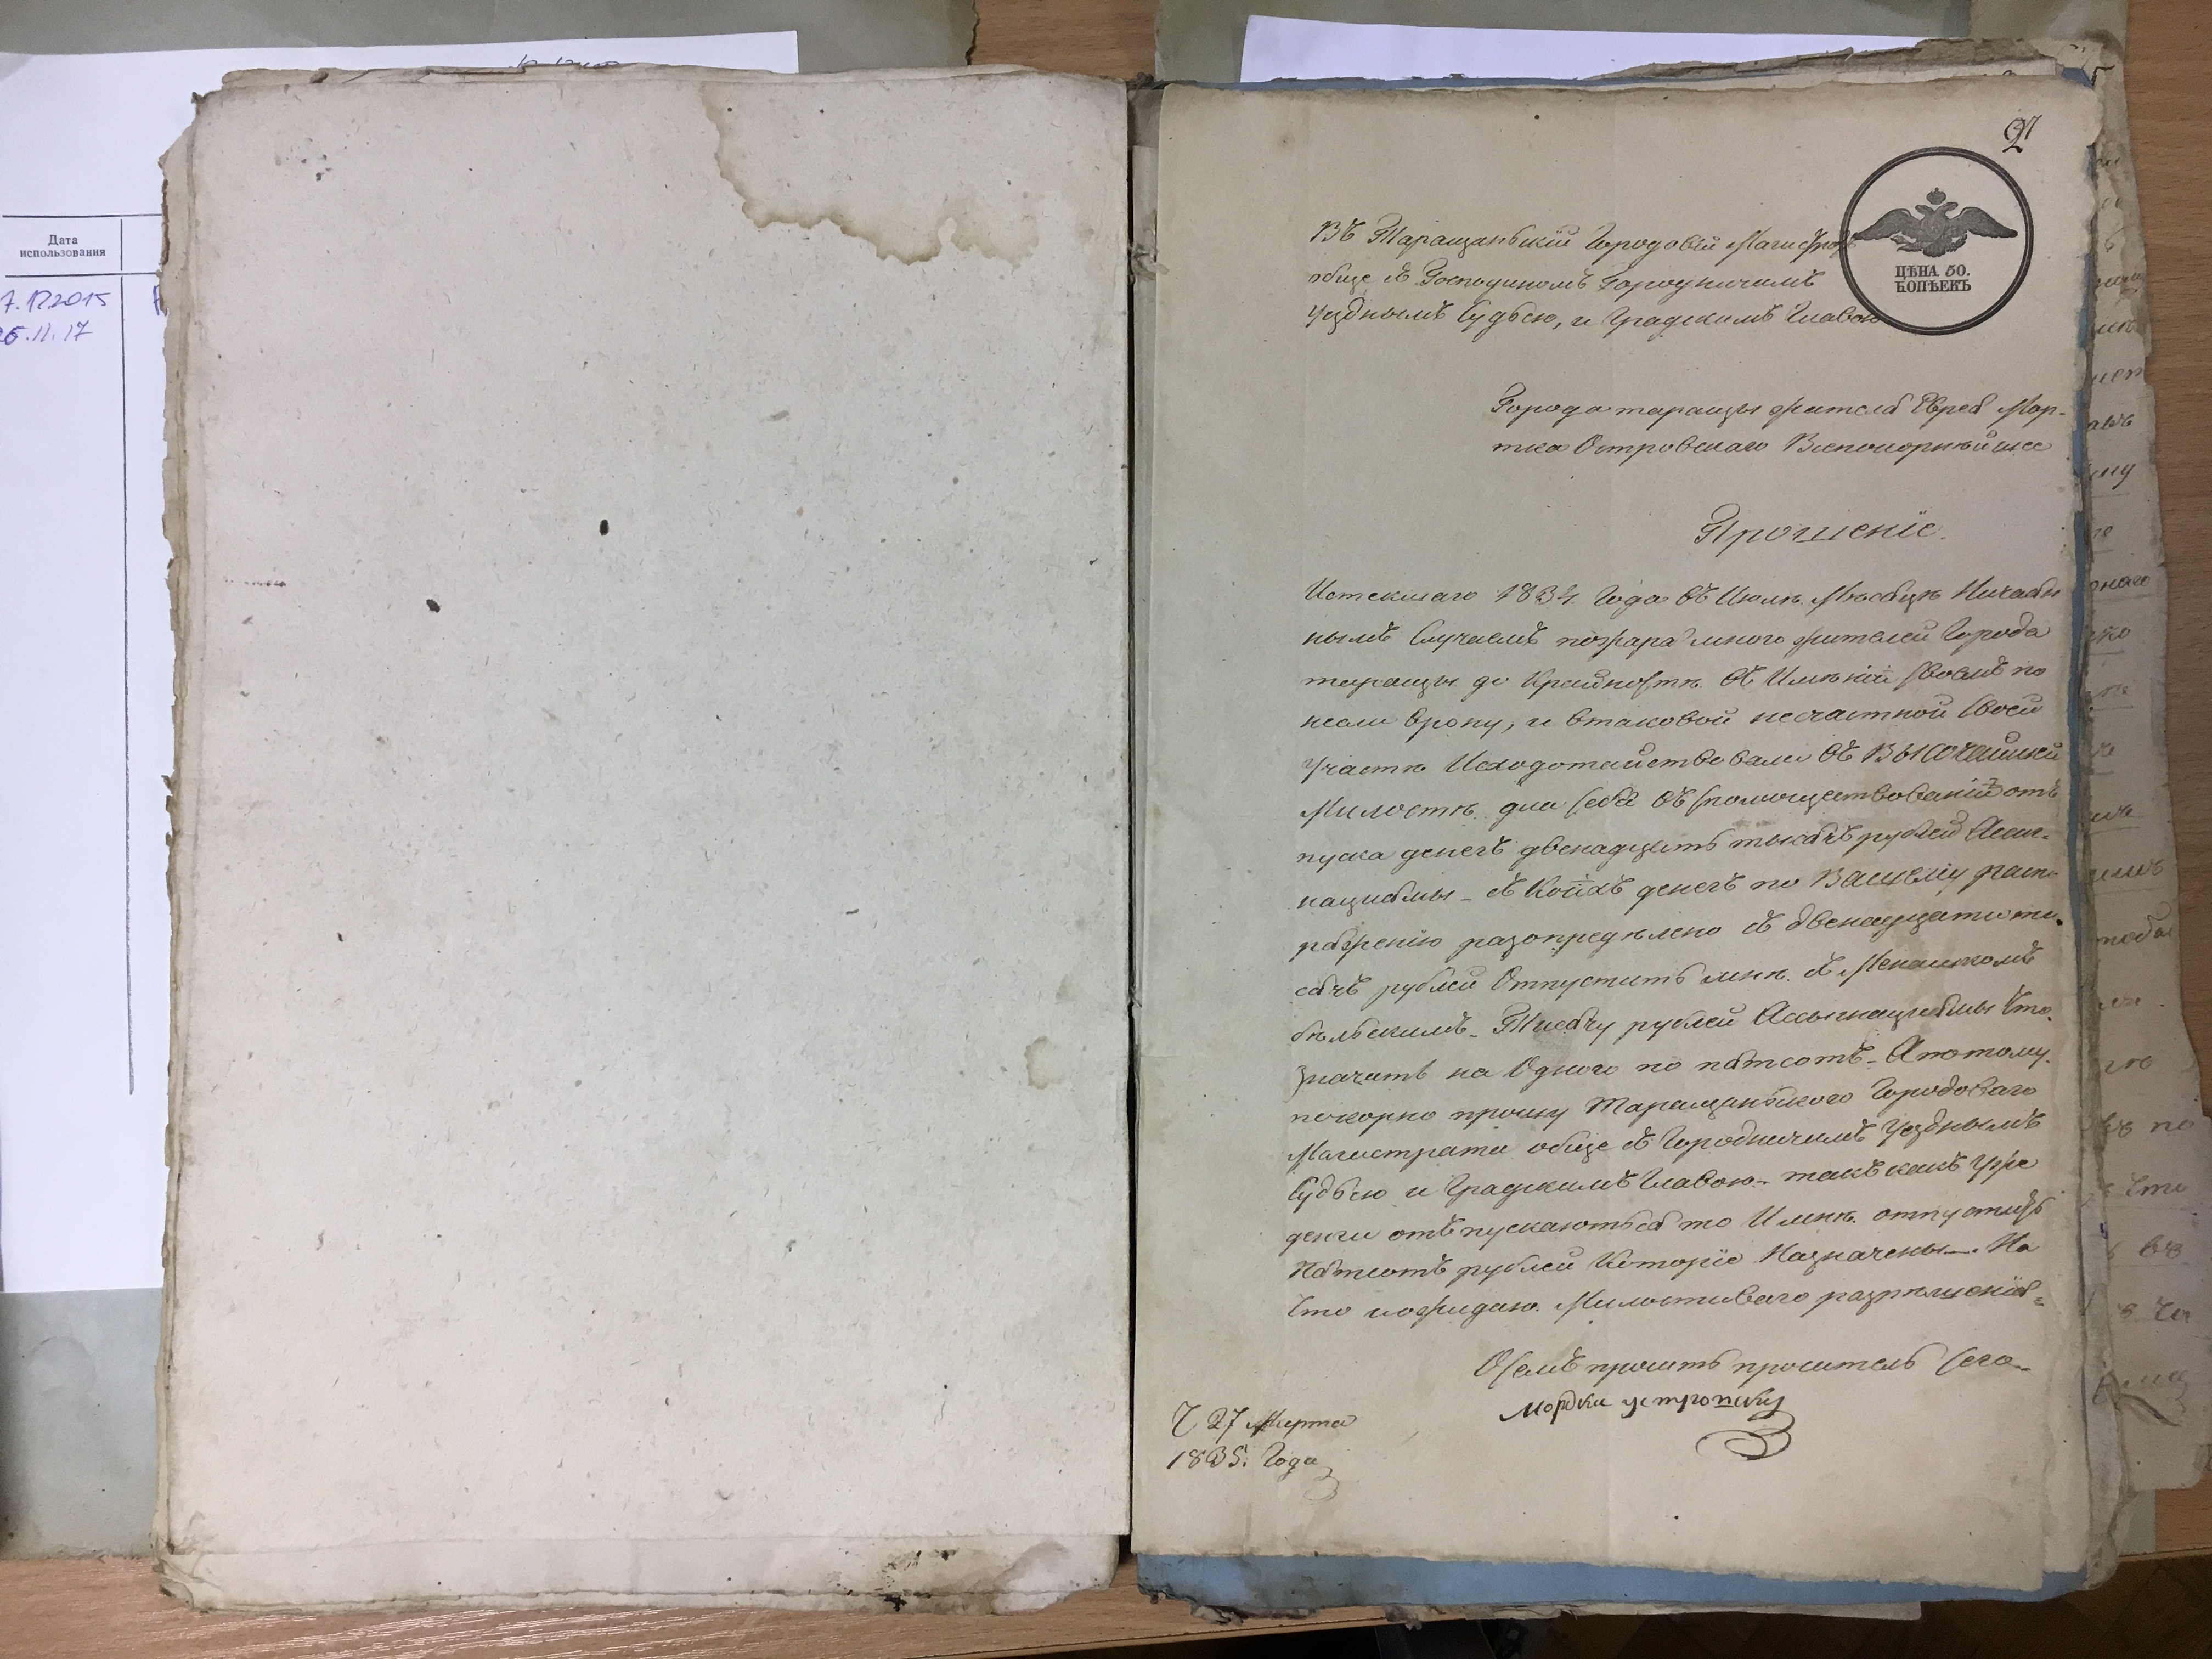 Дата
использования
7.12.2015
26.11.17
27
ЦѢНА 50.
КОПѢЕКЪ
Въ Таращанькій Городовій Магистратъ
обще съ Господиномъ Городничимъ
уезднымъ Судьею, и Градскимъ Главою
Города таращы жителя Еврея Мор-
тка Островскаго Всепокорнѣйшее
Прошеніе.
Истекшаго 1834. Года въ Июлѣ Мѣсяцѣ Ничаян
нымъ Случаемъ пожара много жителей Города
таращы до Крайностѣ въ Имѣніи своемъ по
несли урону, и втаковой несчастной своей
участѣ Исходотайствовали въ ВЫСОЧАйшей
Милостѣ для себя въ спомоществованіи от
пуска денегъ двенадцять тысячъ рублей Асиг-
нациямы - съ Коихъ денегъ по Вашему распо
ряженію разопредѣлено съ двенадцяти ти-
сячъ рублей Отпустить мнѣ съ
бѣльскимъ - Тисячу рублей Ассыгнациямы Что
значитъ на Одного по пятсотъ - А потому
покорно прошу Таращанского Городоваго
Магистрата обще съ Городничимъ уезднымъ
Судьею и Градскимъ Главою - такъ какъ уже
денги отъпускаютьса то И мнѣ отпустить
Пятсотъ рублей Которіе Назначены - На
Что и ожидаю Милостиваго разрешенія =
О семъ просить проситель сего
Мордки устропску
Ч 27 Марта
1835. Года